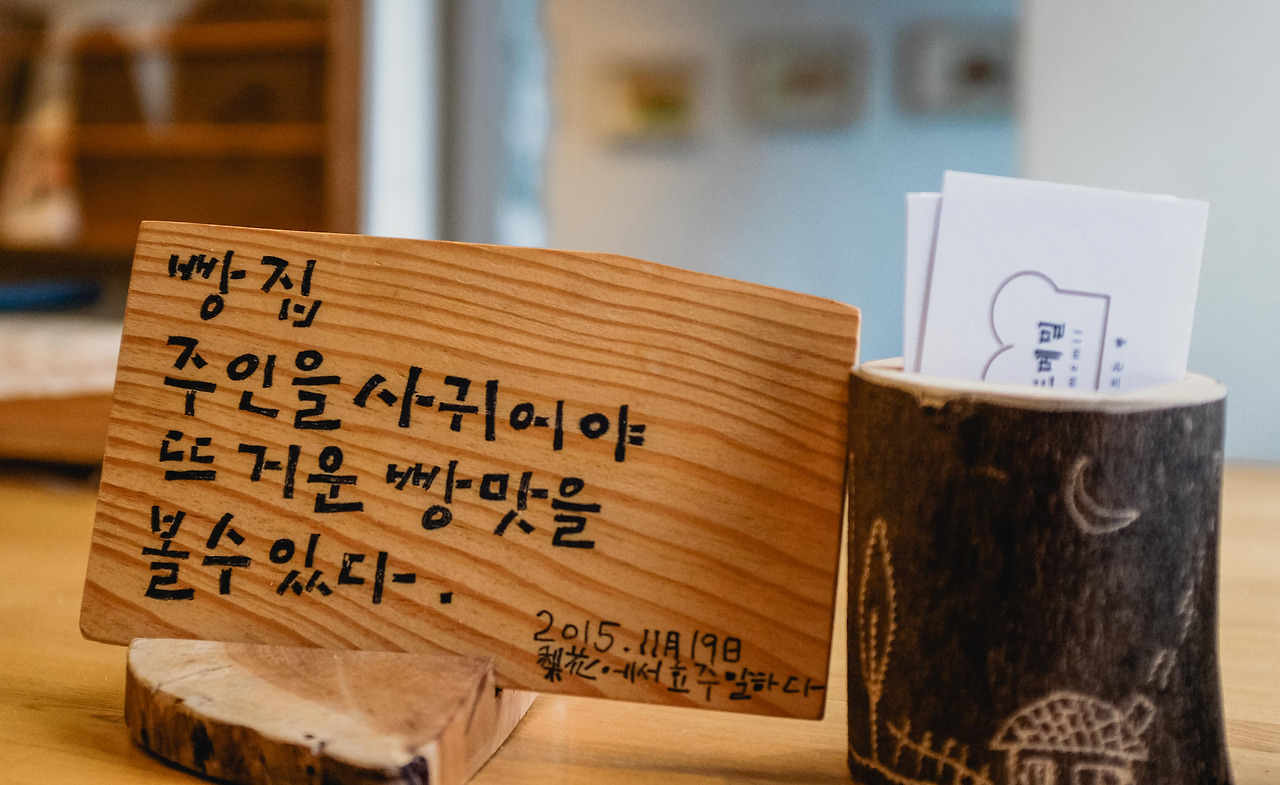 빵집
주인을 사귀어야
뜨거운 빵맛을
볼수있다.
2015.11月19日
梨花에서 효주 말하다
메밀
memil